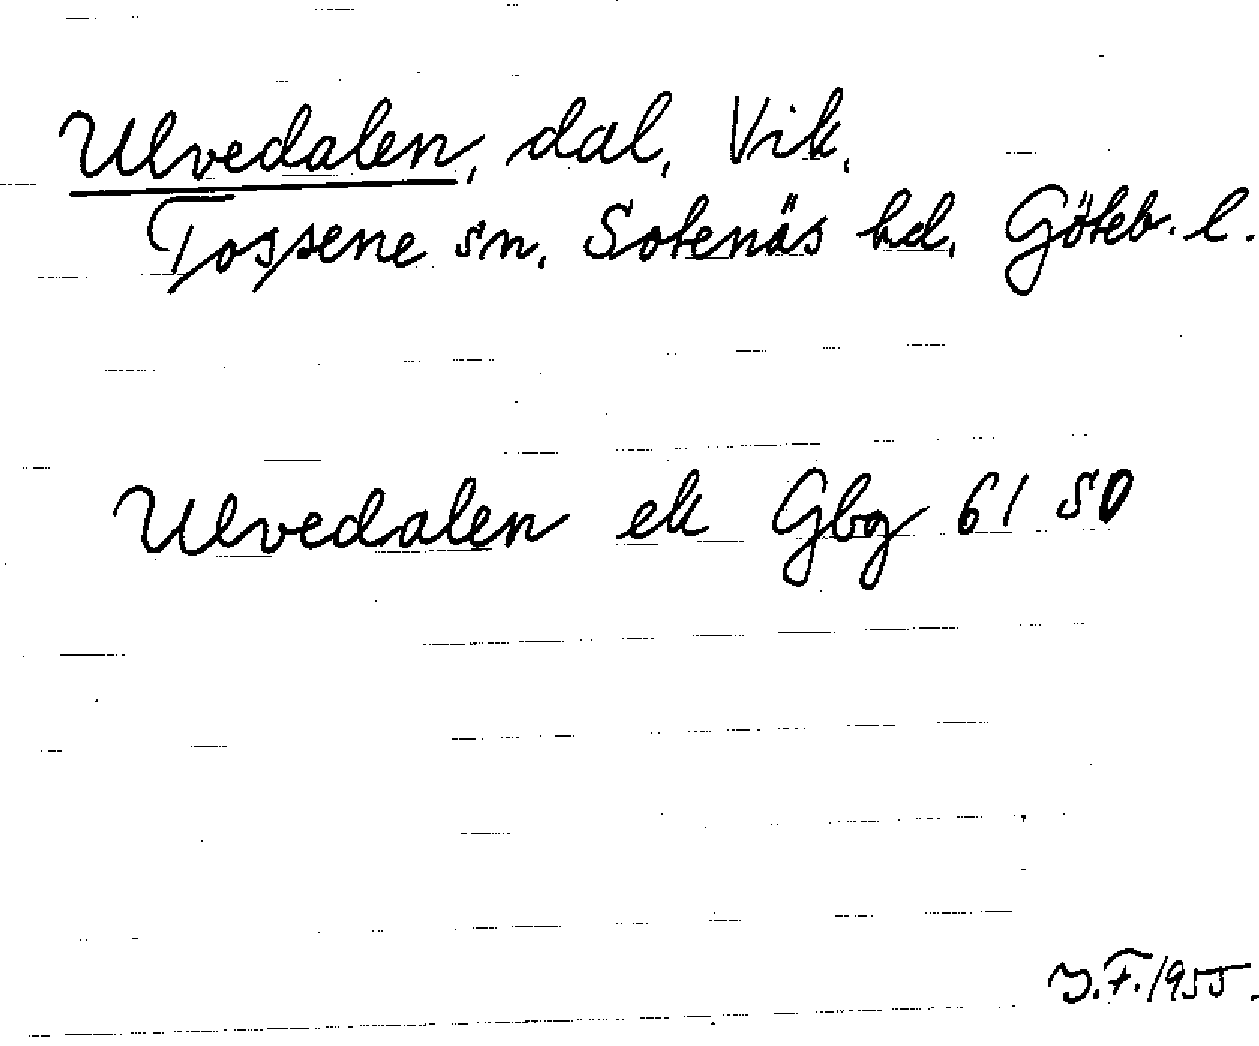 Ulvedalen, dal, Vik,
Tossene sn. Sotenäs hd. Göteb. l.
Ulvedalen ek Gbg 61 SO
J.F. 1955.